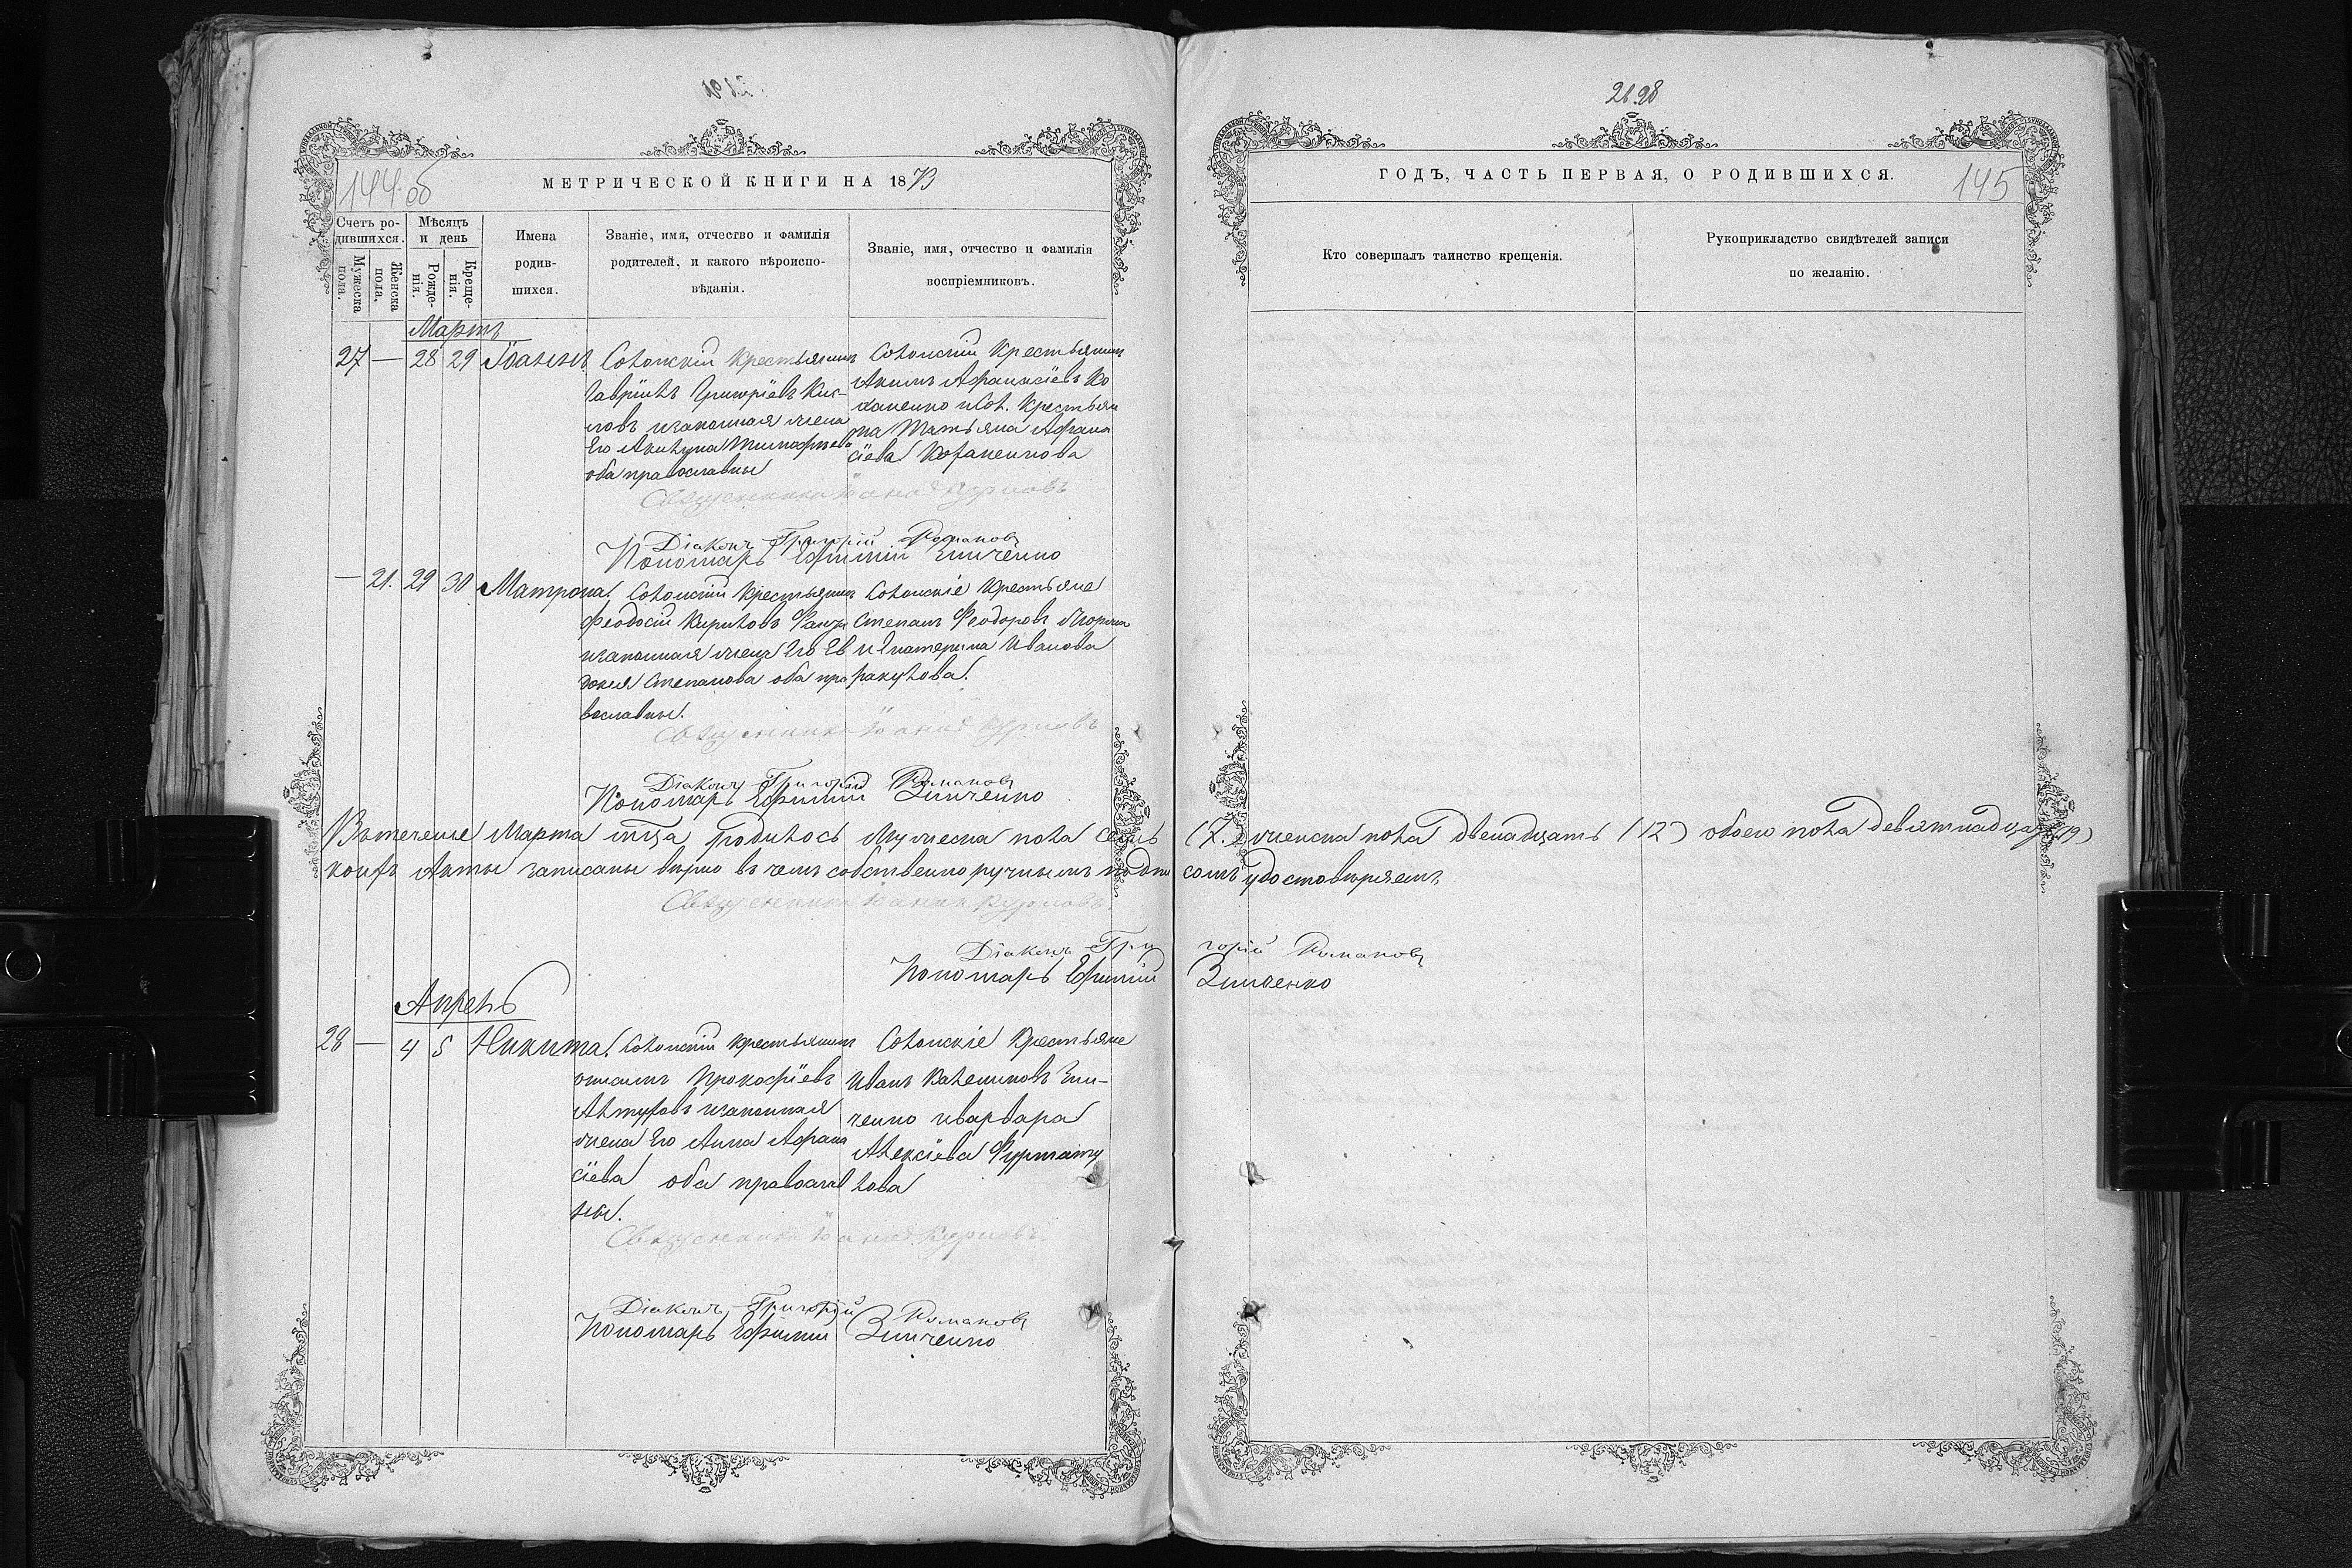 2898
144 об
МЕТРИЧЕСКОЙ КНИГИ НА 1873
ГОДЪ, ЧАСТЬ ПЕРВАЯ, О РОДИВШИХСЯ.
145
Счетъ ро-
дившихся.
Мужеска
пола.
Женска
пола.
Мѣсяцъ
и день
Рожде-
нія.
Креще-
нія.
Имена
родив-
шихся.
Званіе, имя, отчество и фамилія
родителей, и какого вѣроиспо-
вѣданія.
Званіе, имя, отчество и фамилія
воспріемниковъ.
Кто совершалъ таинство крещенія.
Рукоприкладство свидѣтелей записи
по желанію.
Мартъ
27 — 28 29 Іоаннъ
Крестьянинъ
Гавріилъ Григоріевъ
изаконная жена
Его Акилина Тимофеева
оба православны
Крестьянинъ
Акимъ Афанасіевъ Ко
Крестьян
ка Татьяна Афана
сіева
Священникъ Іоаннъ Курловъ
Діаконъ Григорій Романовъ
Пономарь Ефимій Зинченко
— 21. 29 30 Матрона.
Крестьянинъ
Феодосій Кириловъ
изаконная жена Его Ев
докия Степанова оба пра
вославны.
Крестьяне
Степанъ Феодоровъ
и Екатерина Иванова
Священникъ Іоаннъ Курловъ
Діаконъ Григорій Романовъ
Пономарь Ефимій Зинченко
Втечение Марта мца родилось Мужеска пола семь (7.) женска пола двенадцать (12) обоего пола девятнадцать (19)
коихъ Акты записаны вѣрно въ чемъ собственноручнымъ подпи сомъ удостовѣряемъ
Священникъ Іоаннъ Курловъ
Діаконъ Гри горій Романовъ
Пономарь Ефимій Зинченко
Апрель
28 — 4 5 Никита.
Крестьянинъ
Прокофіевъ
изаконная
жена Его Анна Афана
сіева оба православ
ны.
Крестьяне
Иванъ Зин-
ченко иварвара
Алексіева
лова
Священникъ Іоаннъ Курловъ
Діаконъ Григорій Романовъ
Пономарь Ефимій Зинченко